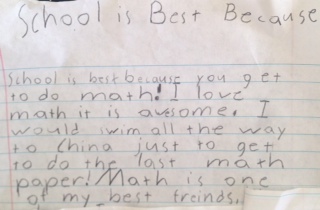 School is Best Because
School is best because you get
to do math! I love
math it is awsome. I
would swim all the way
to China just to get
to do the last math
paper! Math is one
of my best freinds.